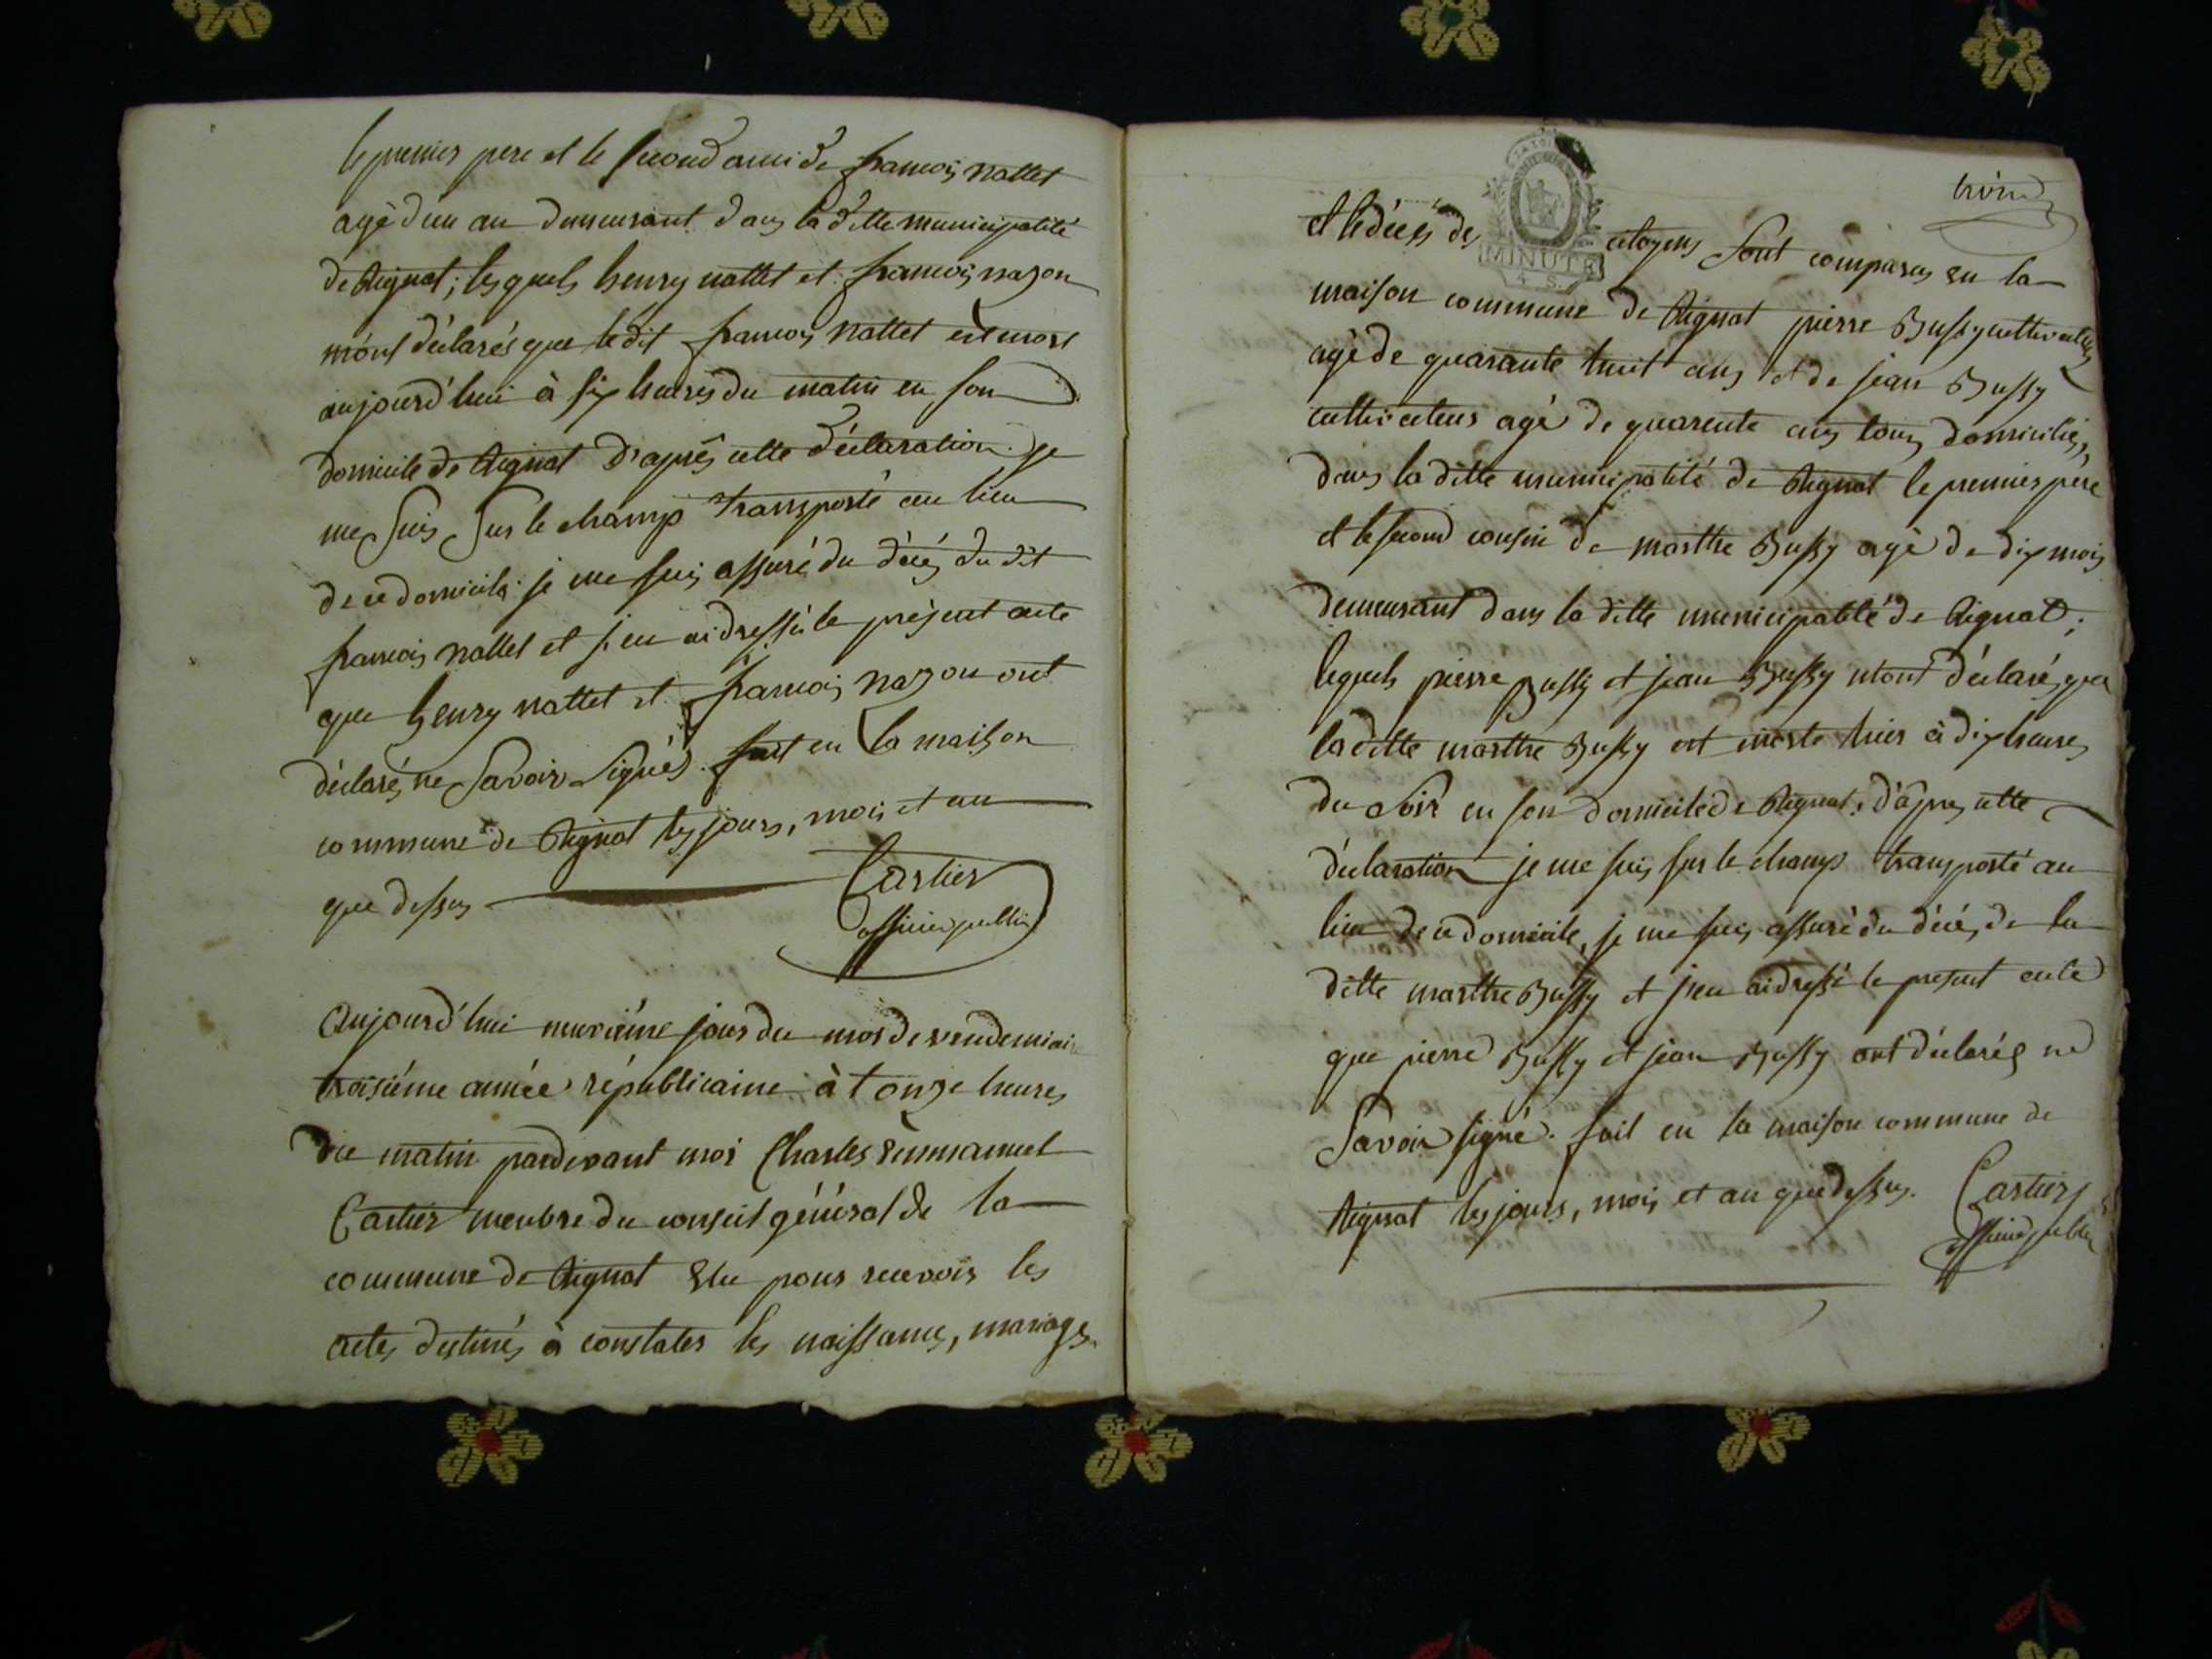 le premier pere et le second ami de francois nallet
agé d'un an demeurant dans la ditte municipalité
de Rignat; lesquels henry nallet et francois nazon
m'ont déclarés que ledit francois nallet est mort
aujourd'hui à six heures du matin en son
domicile de Rignat d'après cette déclaration je
me suis sur le champ transporté au lieu
de ce domicile, je me suis assuré du décés du dit
francois nallet et j'en ai dressé le présent acte
que henry nallet et francois nazon ont
déclarés ne savoir signés. fait en la maison
commune de Rignat les jours, mois et an
que dessus Cartier
officier public
Aujourd'hui neuvième jour du mois de vendemiaire
troisiéme année républicaine à onze heures
du matin pardevant moi Charles Emmanuel
Cartier menbre du conseil général de la
commune de Rignat Elu pour recevoir les
actes destinés à constater les naissances, mariages
troize
et le décés des citoyens sont comparus en la
MINUTE
4. S.
maison commune de Rignat pierre Bussy cultivateur
agé de quarante huit ans et de jean Bussy
cultivateur agé de quarente ans tous domiciliés
dans la ditte municipalité de Rignat le premier père
et le second cousin de marthe Bussy agé de dix mois
demeurant dans la ditte municipalité de Rignat;
lequels pierre Bussy et jean Bussy m'ont déclarés que
laditte marthe Bussy est morte hier à dix heures
du soir en son domicile de Rignat; d'après cette
déclaration je me suis sur le champ transporté au
lieu de ce domicile, je me suis assuré du décés de la
ditte marthe Bussy et j'en ai dressé le présent acte
que pierre Bussy et jean Bussy ont déclarés ne
savoir signé. fait en la maison commune de
Rignat les jours, mois et an que dessus. Cartier
officier public